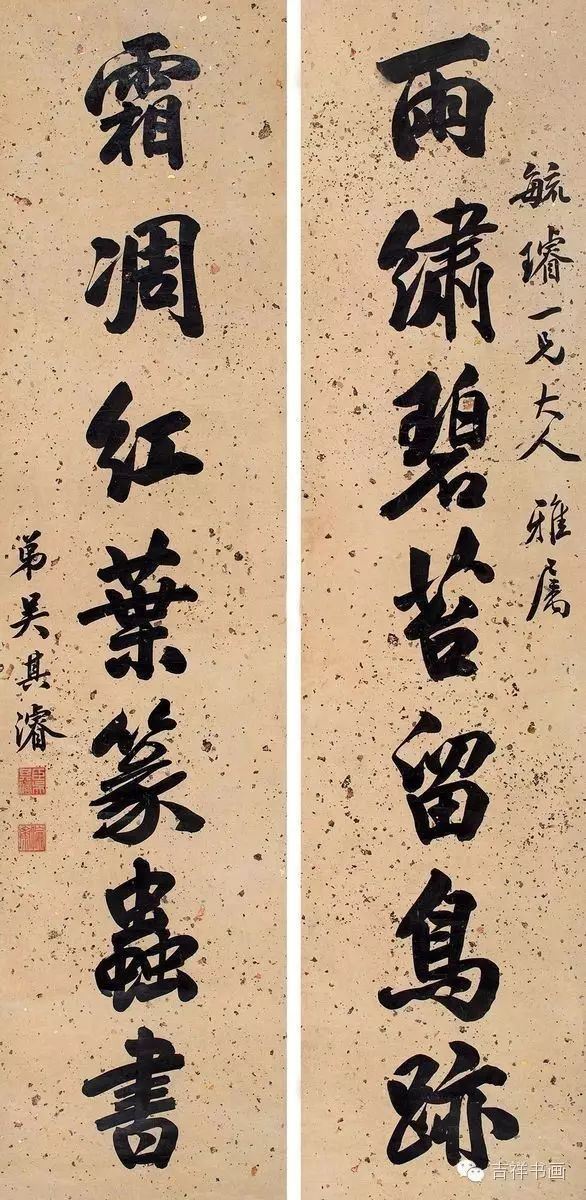 毓璿一兄大人 雅属
雨繡碧苔留鳥跡
霜凋紅葉篆蟲書
弟吴其濬
吉祥书画